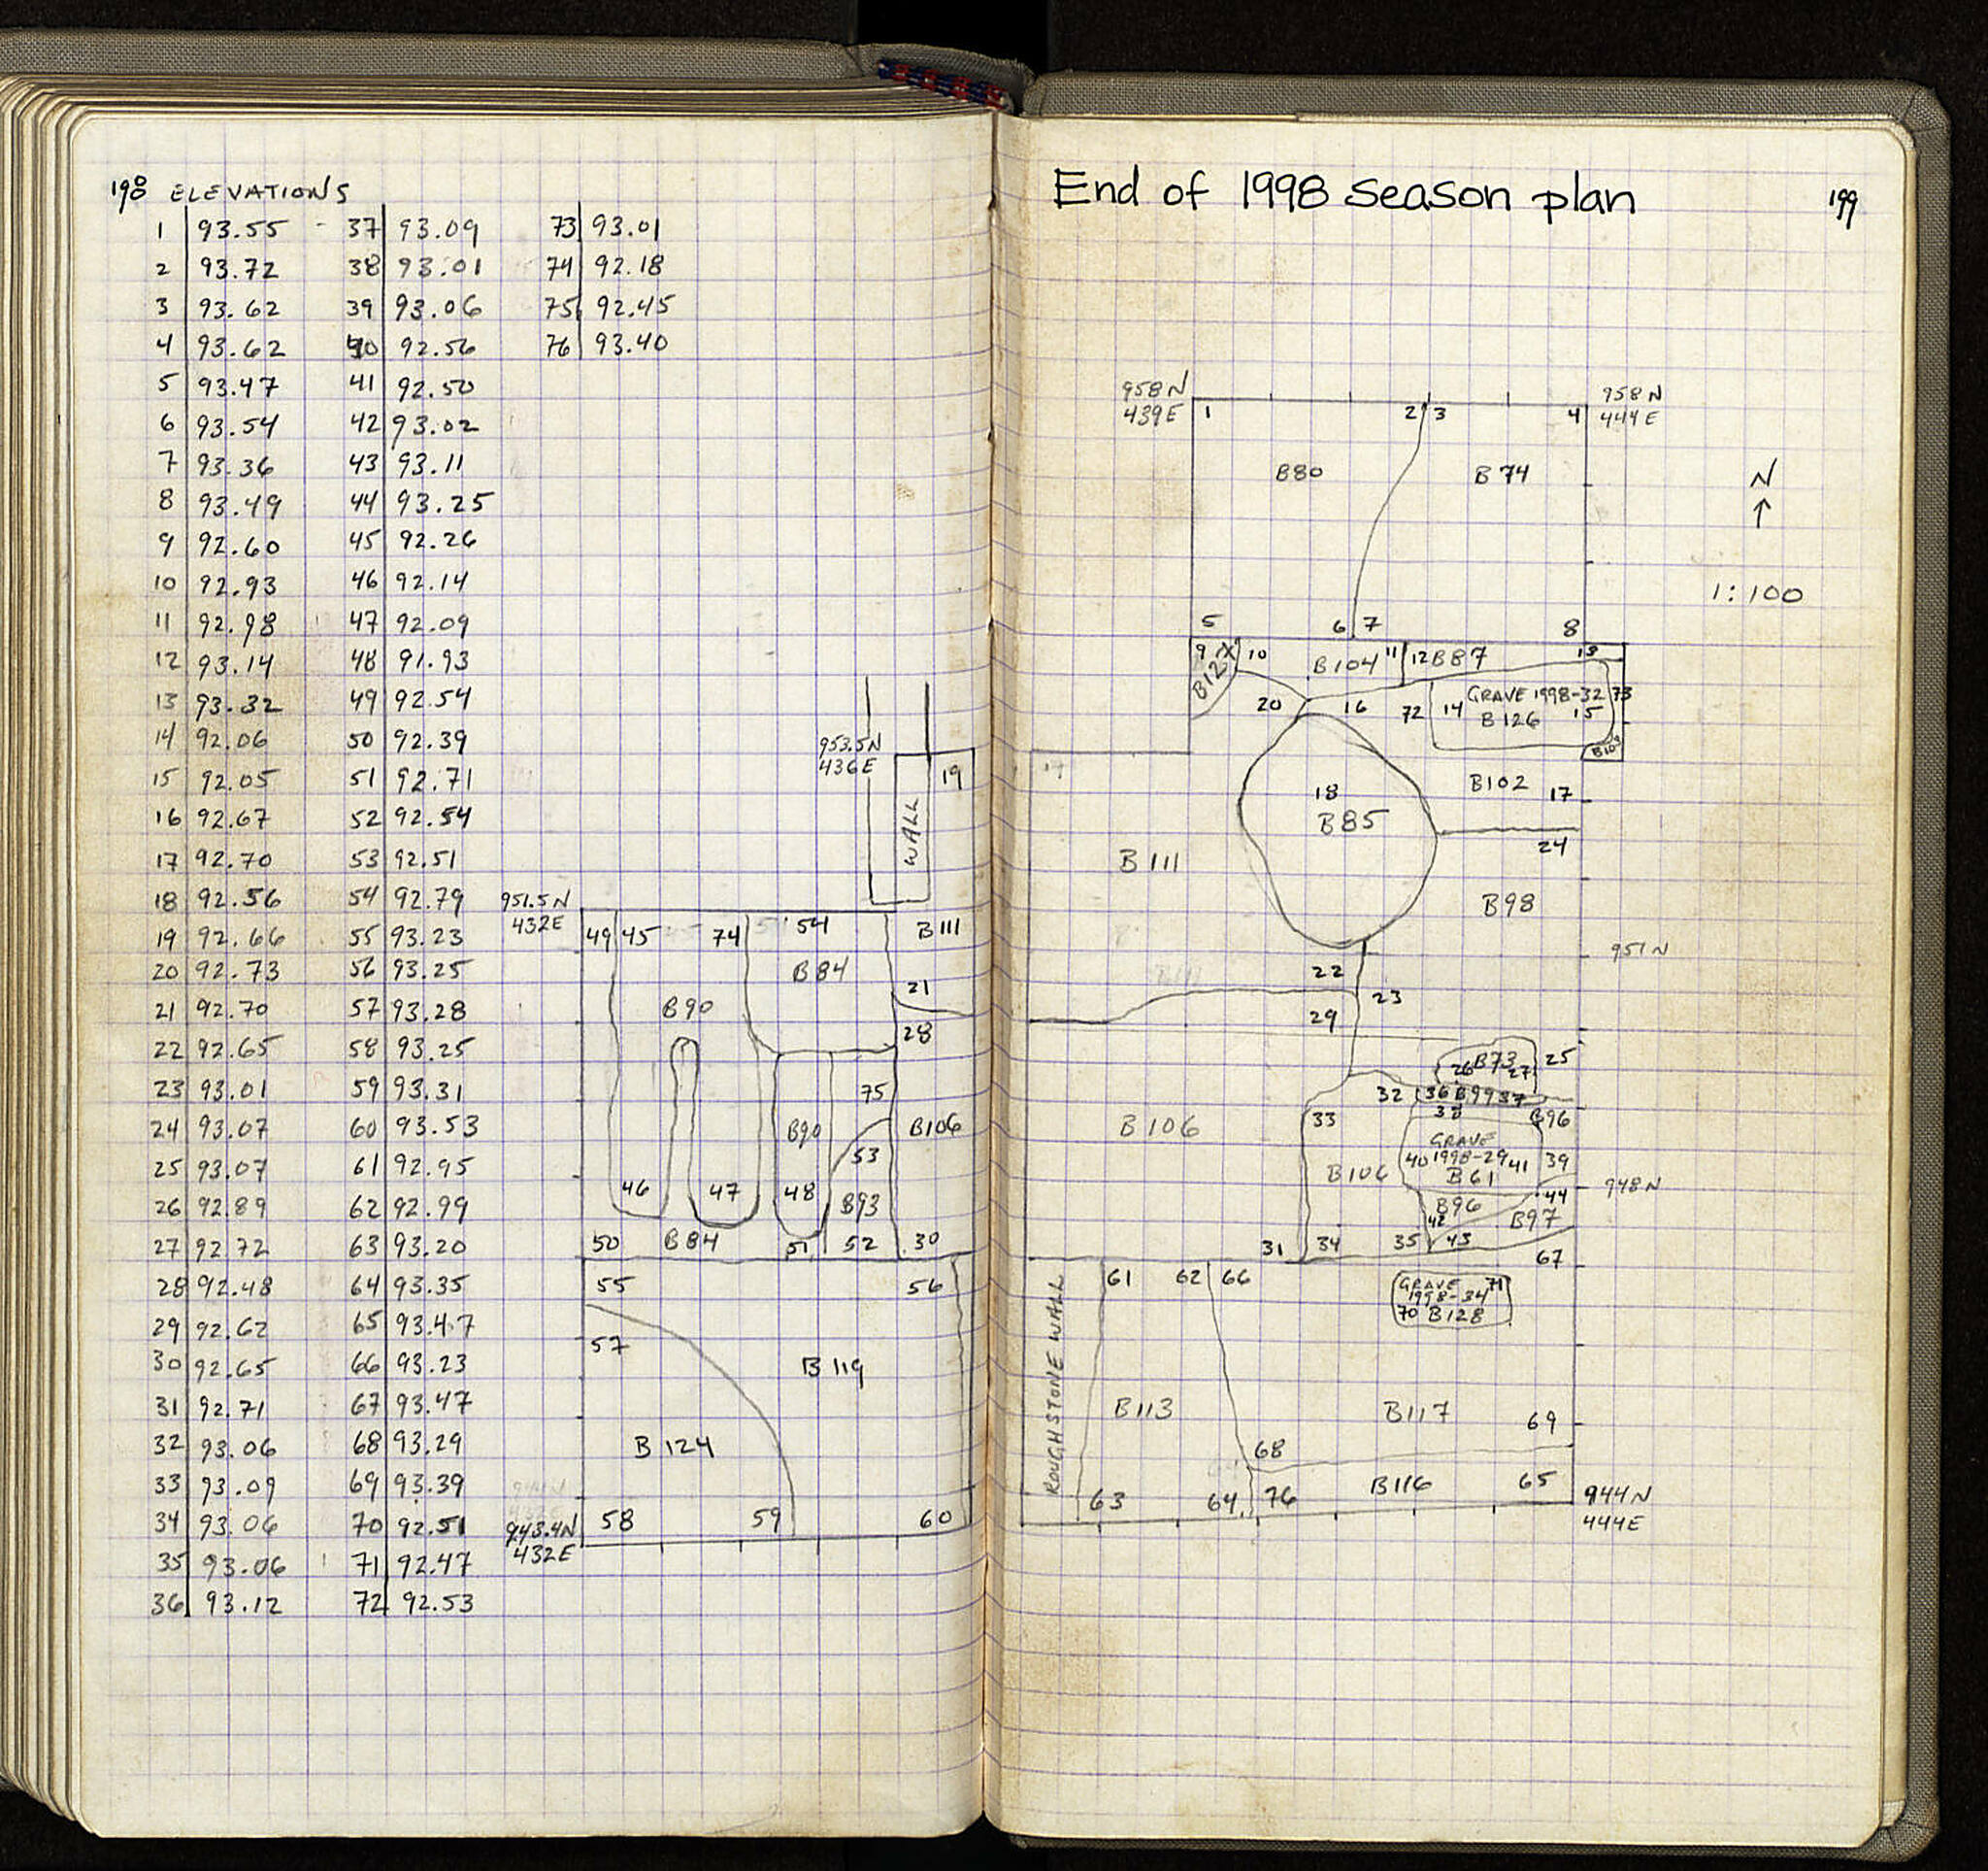 198 ELEVATIONS
1 93.55 37 93.09 73 93.01
2 93.72 38 93.01 74 92.18
3 93.62 39 93.06 75 92.45
4 93.62 40 92.56 76 93.40
5 93.47 41 92.50
6 93.54 42 93.02
7 93.36 43 93.11
8 93.49 44 93.25
9 92.60 45 92.26
10 92.93 46 92.14
11 92.98 47 92.09
12 93.14 48 91.93
13 93.32 49 92.54
14 92.06 50 92.39
15 92.05 51 92.71
16 92.67 52 92.54
17 92.70 53 92.51
18 92.56 54 92.79
19 92.66 55 93.23
20 92.73 56 93.25
21 92.70 57 93.28
22 92.65 58 93.25
23 93.01 59 93.31
24 93.07 60 93.53
25 93.07 61 92.95
26 92.89 62 92.99
27 92.72 63 93.20
28 92.48 64 93.35
29 92.62 65 93.47
30 92.65 66 93.23
31 92.71 67 93.47
32 93.06 68 93.29
33 93.09 69 93.39
34 93.06 70 92.51
35 93.06 71 92.47
36 93.12 72 92.53
953.5N
436E
19
WALL
951.5N
432E
49 45 74 54 B111
B84
21
B90
28
75
B90 B106
53
46 47 48 B93
50 B84 51 52 30
55 56
57
B119
B124
943.4N
432E
58 59 60
End of 1998 season plan
199
958N
439E
958N
444E
1 2 3 4
B80 B74
N
1:100
5 6 7 8
9 X 10 B104 11 12 B87 13
B12
20 16 72 14 GRAVE 1998-32 73
B126 15
B103
B102 17
18
B85
24
B111
B98
951N
22
23
29
26 B73 27 25
32 36 B99 37
33 38 B96
B106
GRAVE
40 1998-29 41 39
B106 B61
948N
44
B96
42 B97
31 34 35 43
67
61 62 66
GRAVE 71
1998-34
70 B128
ROUGH STONE WALL
B113 B117 69
68
B116 65
63 64 76
944N
444E